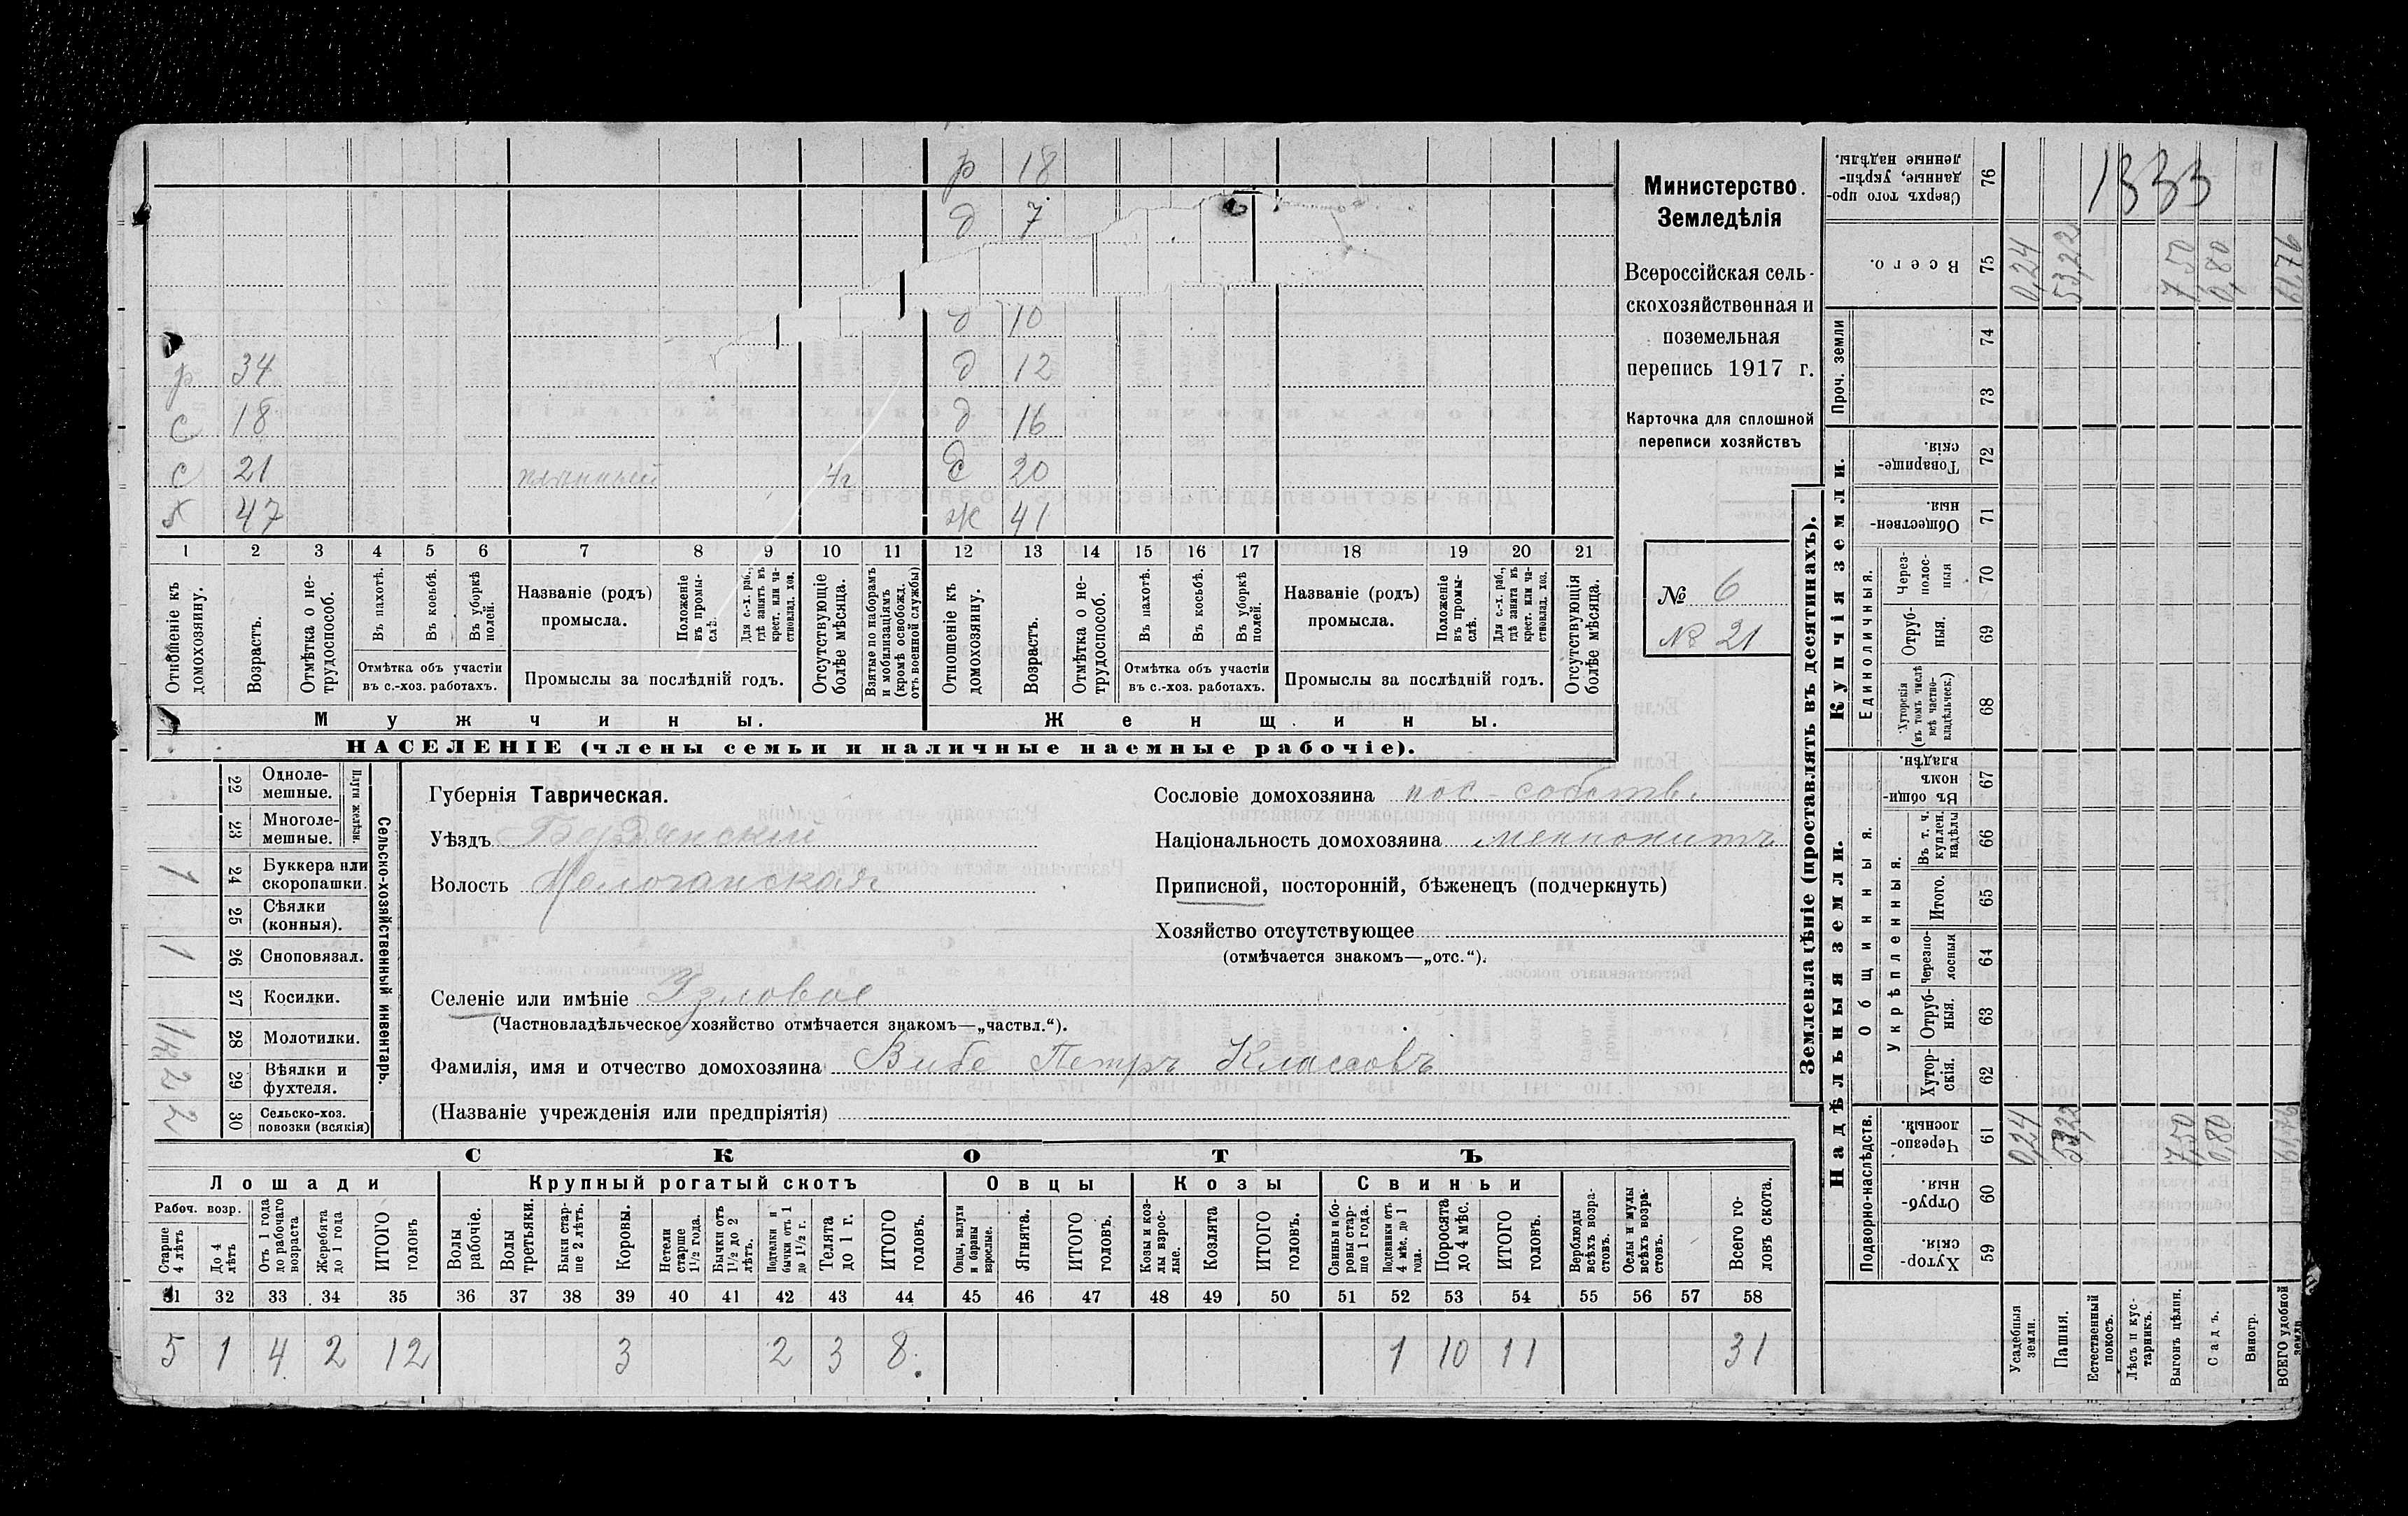 р 18
д 7
д 10
р 34 д 12
с 18 д 16
с 21 плѣнный 4г с 20
х 47 ж 41
1 2 3 4 5 6 7 8 9 10 11 12 13 14 15 16 17 18 19 20 21
Отношеніе къ домохозяину.
Возрастъ.
Отмѣтка о не-трудоспособ.
Въ пахотѣ.
Въ косьбѣ.
Въ уборкѣ полей.
Отмѣтка объ участіи въ с.-хоз. работахъ.
Названіе (родъ) промысла.
Положеніе въ промы-слѣ.
Для с.-х. раб., гдѣ занятъ въ крест. или ча-стновлад. хоз.
Промыслы за послѣдній годъ.
Отсутствующіе болѣе мѣсяца.
Взятые по наборамъ и мобилизаціямъ (кромѣ освобожд. отъ военной службы)
Отношеніе къ домохозяину.
Возрастъ.
Отмѣтка о не-трудоспособ.
Въ пахотѣ.
Въ косьбѣ.
Въ уборкѣ полей.
Отмѣтка объ участіи въ с.-хоз. работахъ.
Названіе (родъ) промысла.
Положеніе въ промы-слѣ.
Для с.-х. раб., гдѣ занята въ крест. или ча-стновлад. хоз.
Промыслы за послѣдній годъ.
Отсутствующія болѣе мѣсяца.
Мужчины.
Женщины.
НАСЕЛЕНІЕ (члены семьи и наличные наемные рабочіе).
Министерство
Земледѣлія
Всероссійская сель-
скохозяйственная и
поземельная
перепись 1917 г.
Карточка для сплошной
переписи хозяйствъ
№ 6
№ 21
Сельско-хозяйственный инвентарь.
Плуги желѣзн.
22 Одноле-мешные.
23 Многоле-мешные.
1 24 Буккера или скоропашки.
25 Сѣялки (конныя).
1 26 Сноповязал.
27 Косилки.
28 Молотилки.
29 Вѣялки и фухтеля.
2 30 Сельско-хоз. повозки (всякія)
Губернія Таврическая.
Уѣздъ Бердянскій
Волость Молочанская
Сословіе домохозяина пос.-собств.
Національность домохозяина меннонитъ
Приписной, посторонній, бѣженецъ (подчеркнуть)
Хозяйство отсутствующее
(отмѣчается знакомъ—„отс.“).
Селеніе или имѣніе Узловое
(Частновладѣльческое хозяйство отмѣчается знакомъ—„частвл.“).
Фамилія, имя и отчество домохозяина Вибе Петръ Классовъ
(Названіе учрежденія или предпріятія)
СКОТЪ
Лошади Крупный рогатый скотъ Овцы Козы Свиньи
Рабоч. возр.
Старше 4 лѣтъ
До 4 лѣтъ
Отъ 1 года до рабочаго возраста
Жеребята до 1 года
ИТОГО головъ
Волы рабочіе.
Волы третьяки.
Быки стар-ше 2 лѣтъ.
Коровы.
Нетели старше 1½ года.
Бычки отъ 1½ до 2 лѣтъ.
Подтелки и бычки отъ 1 до 1½ г.
Телята до 1 г.
ИТОГО головъ.
Овцы, валухи и бараны взрослые.
Ягнята.
ИТОГО головъ.
Козы и коз-лы взрос-лые.
Козлята
ИТОГО головъ.
Свиньи и бо-ровы стар-ше 1 года.
Подсвинки отъ 4 мѣс. до 1 года.
Поросята до 4 мѣс.
ИТОГО головъ.
Верблюды всѣхъ возра-стовъ.
Ослы и мулы всѣхъ возра-стовъ.
Всего го-ловъ скота.
31 32 33 34 35 36 37 38 39 40 41 42 43 44 45 46 47 48 49 50 51 52 53 54 55 56 57 58
5 1 4 2 12 3 2 3 8 1 10 11 31
Землевладѣніе (проставлять въ десятинахъ).
Надѣльныя земли. Купчія земли.
Проч. земли
Подворно-наслѣдств.
Общинныя.
Укрѣпленныя.
Единоличныя.
Сверхъ того про-данные, укрѣп-ленные надѣлы. 76 1333
Всего. 75 0,24 53,22 7,50 0,80 61,76
74
73
Товарище-скія. 72
Обществен-ныя. 71
Через-полос-ныя 70
Отруб-ныя. 69
Хуторскія (въ томъ числѣ всѣ частно-владѣльческ.) 68
Въ общи-номъ владѣн. 67
Въ т. ч. куплен. надѣлы 66
Итого. 65
Черезпо-лосныя 64
Отруб-ныя. 63
Хутор-скія. 62
Черезпо-лосныя. 61 0,24 53,22 7,50 0,80 61,76
Отруб-ныя. 60
Хутор-скія. 59
Усадебныя земли.
Пашня.
Естественный покосъ.
Лѣсъ и кус-тарникъ.
Выгонъ цѣлин.
Садъ.
Виногр.
ВСЕГО удобной земли.